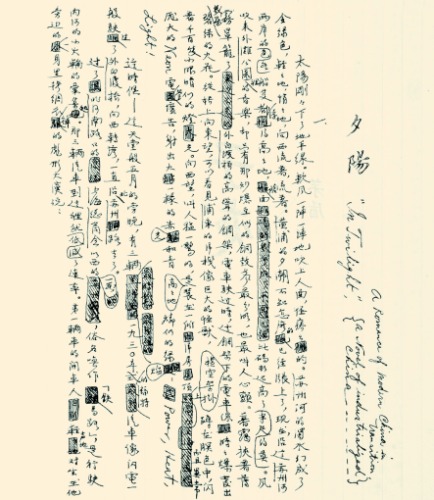 夕陽
"In Twilight",
a Romance of modern China in
transition
{a novel of industrialized
China......}
太陽剛剛下了地平線。軟風一陣一陣地吹上人面，怪癢癢的。蘇州河的濁水幻成了
金綠色，輕輕地，悄悄地，向西流去。黃浦的夕潮不知怎的已經漲上了，現在沿這蘇州河
兩岸的各色船隻都浮得高高地，艙面比碼頭還高了約莫半尺。風
吹來外灘公園的音樂，卻只有那炒豆似的銅鼓聲最分明，也最叫人興奮。暮靄挾着薄
霧籠罩了外白渡橋的高聳的鋼架，電車駛過時，這鋼架下橫空架掛的電車線時時爆發出
幾朵碧綠的火花。從橋上向東望，可以看見浦東的洋棧像巨大的怪獸，蹲在暝色中，閃
着千百隻小眼睛似的燈火。向西望，叫人猛一驚的，是高高地裝在一所洋房頂上而且異常
龐大的Neon電管廣告，射出火一樣的赤光和青燐似的綠焰：Power, Heat,
Light!
這時候——這天堂般五月的傍晚，有三輛一九三〇年式的汽車像閃電一
般駛過了外白渡橋，向西轉彎，一直沿北蘇州路去了。
過了北河南路口的上海總商會以西的一段，俗名喚作"鐵馬路"，是行駛
內河的小火輪的匯集處。那三輛汽車到這裡就減低了速率。第一輛車的開車人輕聲對坐在他
旁邊的穿一身黑拷綢衣褲的彪形大漢說：